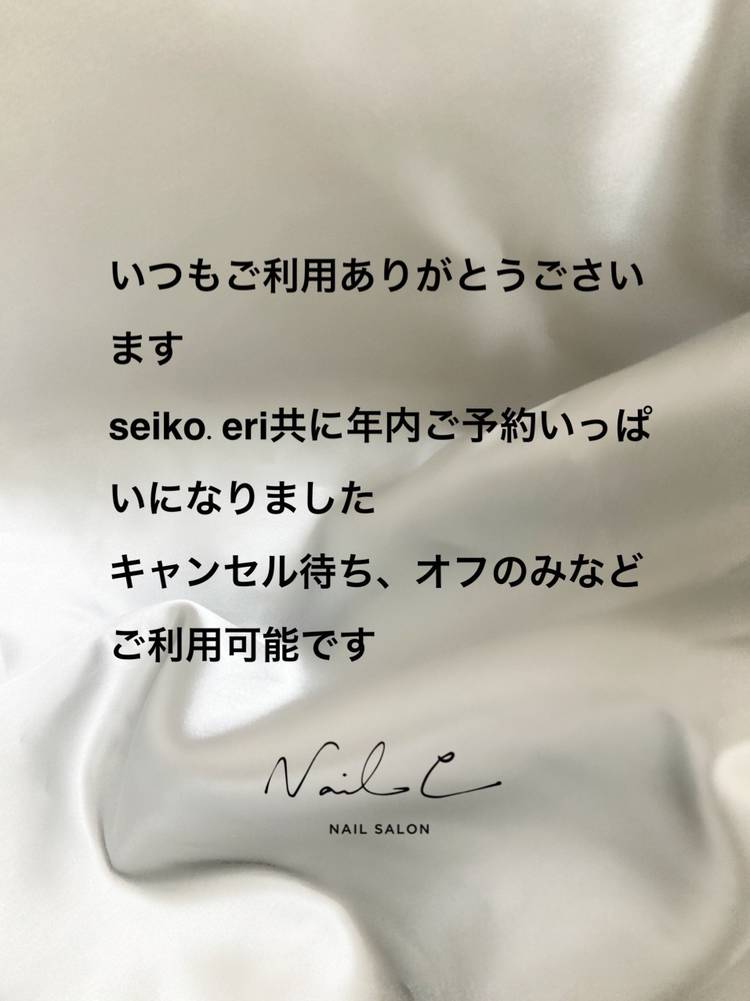 いつもご利用ありがとうごさい
ます
seiko. eri共に年内ご予約いっぱ
いになりました
キャンセル待ち、オフのみなど
ご利用可能です
Nail C
NAIL SALON